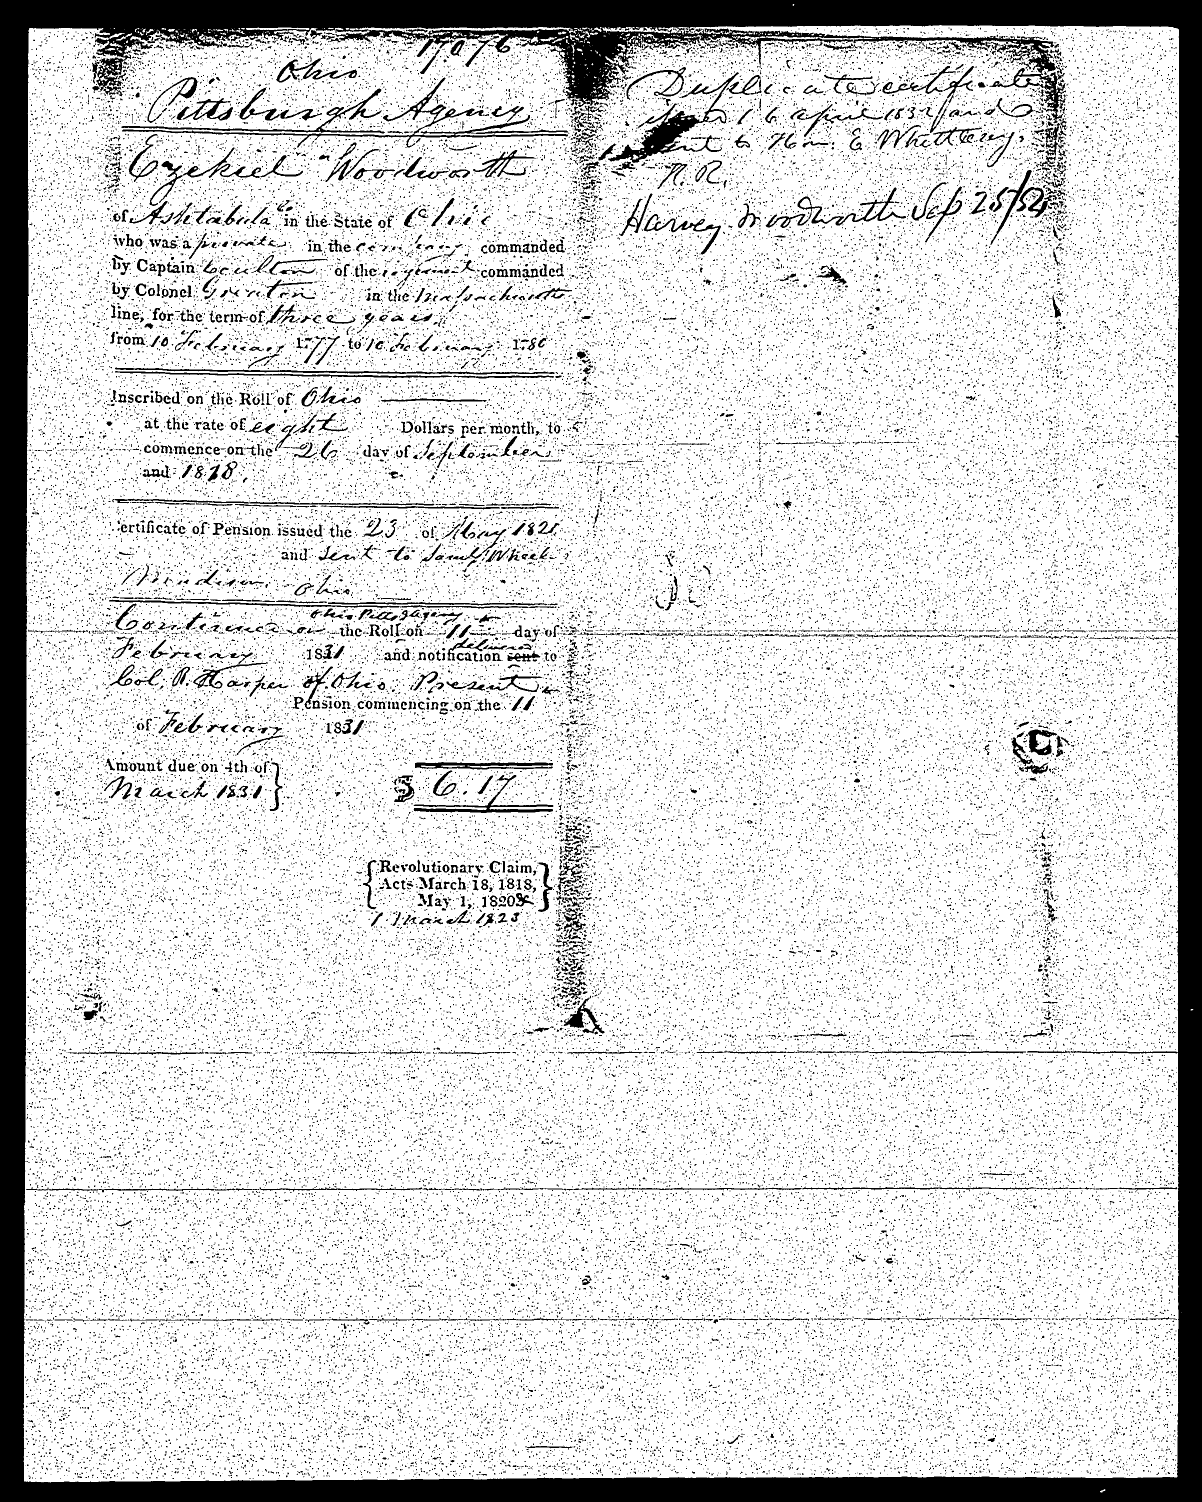 17.076
Ohio
Pittsburgh Agency
Ezekiel Woodworth
of Ashtabula Co in the State of Ohio
who was a private in the company commanded
by Captain Coulton of the regiment commanded
by Colonel Greaton in the Massachusetts
line, for the term of three years
from 10 February 1777 to 10 February 1780
Inscribed on the Roll of Ohio
at the rate of eight Dollars per month, to
commence on the 26 day of September
and 1818.
ertificate of Pension issued the 23 of May 1821
and sent to Saml. Wheel
Madison Ohio
Ohio Pittsg Agency
Continued on the Roll on 11 day of
February 1831 and notification sent delivered to
Col. R. Harper of Ohio. Present
Pension commencing on the 11
of February 1831
Amount due on 4th of
March 1831 } $ 6.17
{ Revolutionary Claim,
Acts March 18, 1818,
May 1, 1820 & }
1 March 1823
Duplicate certificate
issued 16 April 1832 and
sent to Hon. E Whittlesey.
H. R.
Harvey Woodworth Sep 25/52